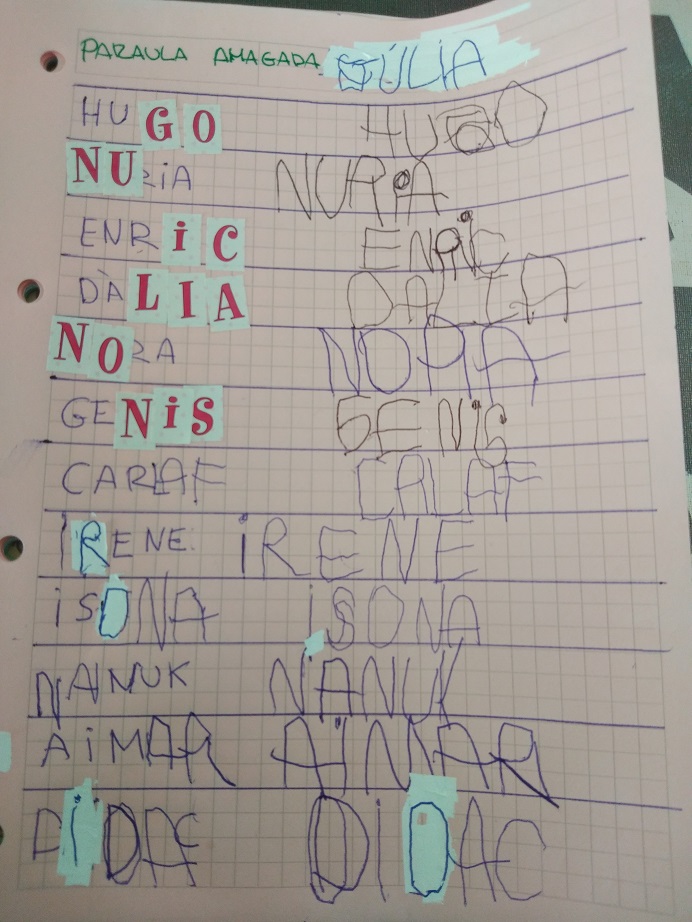 PARAULA AMAGADA JÚLIA
HUGO HUGO
NURiA NURiA
ENRiC ENRiC
DÀLIA DALIA
NORA NORA
GENiS GENiS
CARLAF CALAF
IRENE iRENE
iSONA iSONA
NANUK NANUK
AiMAR AiMAR
DiDAC DIDAC